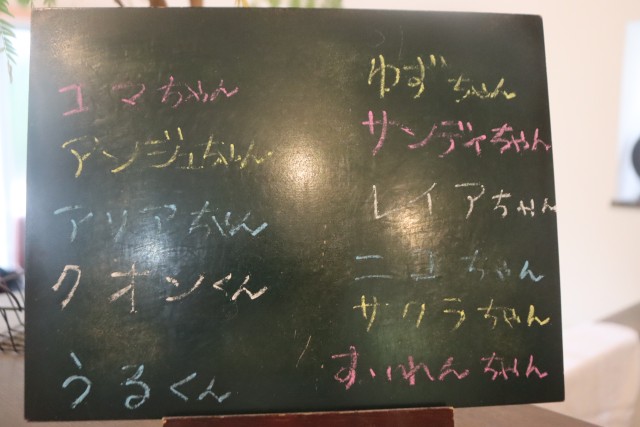 エマちゃん
アンジュちゃん
アリアちゃん
クオンくん
うるくん
ゆずちゃん
サンディちゃん
レイアちゃん
ニコちゃん
サクラちゃん
すいれんちゃん